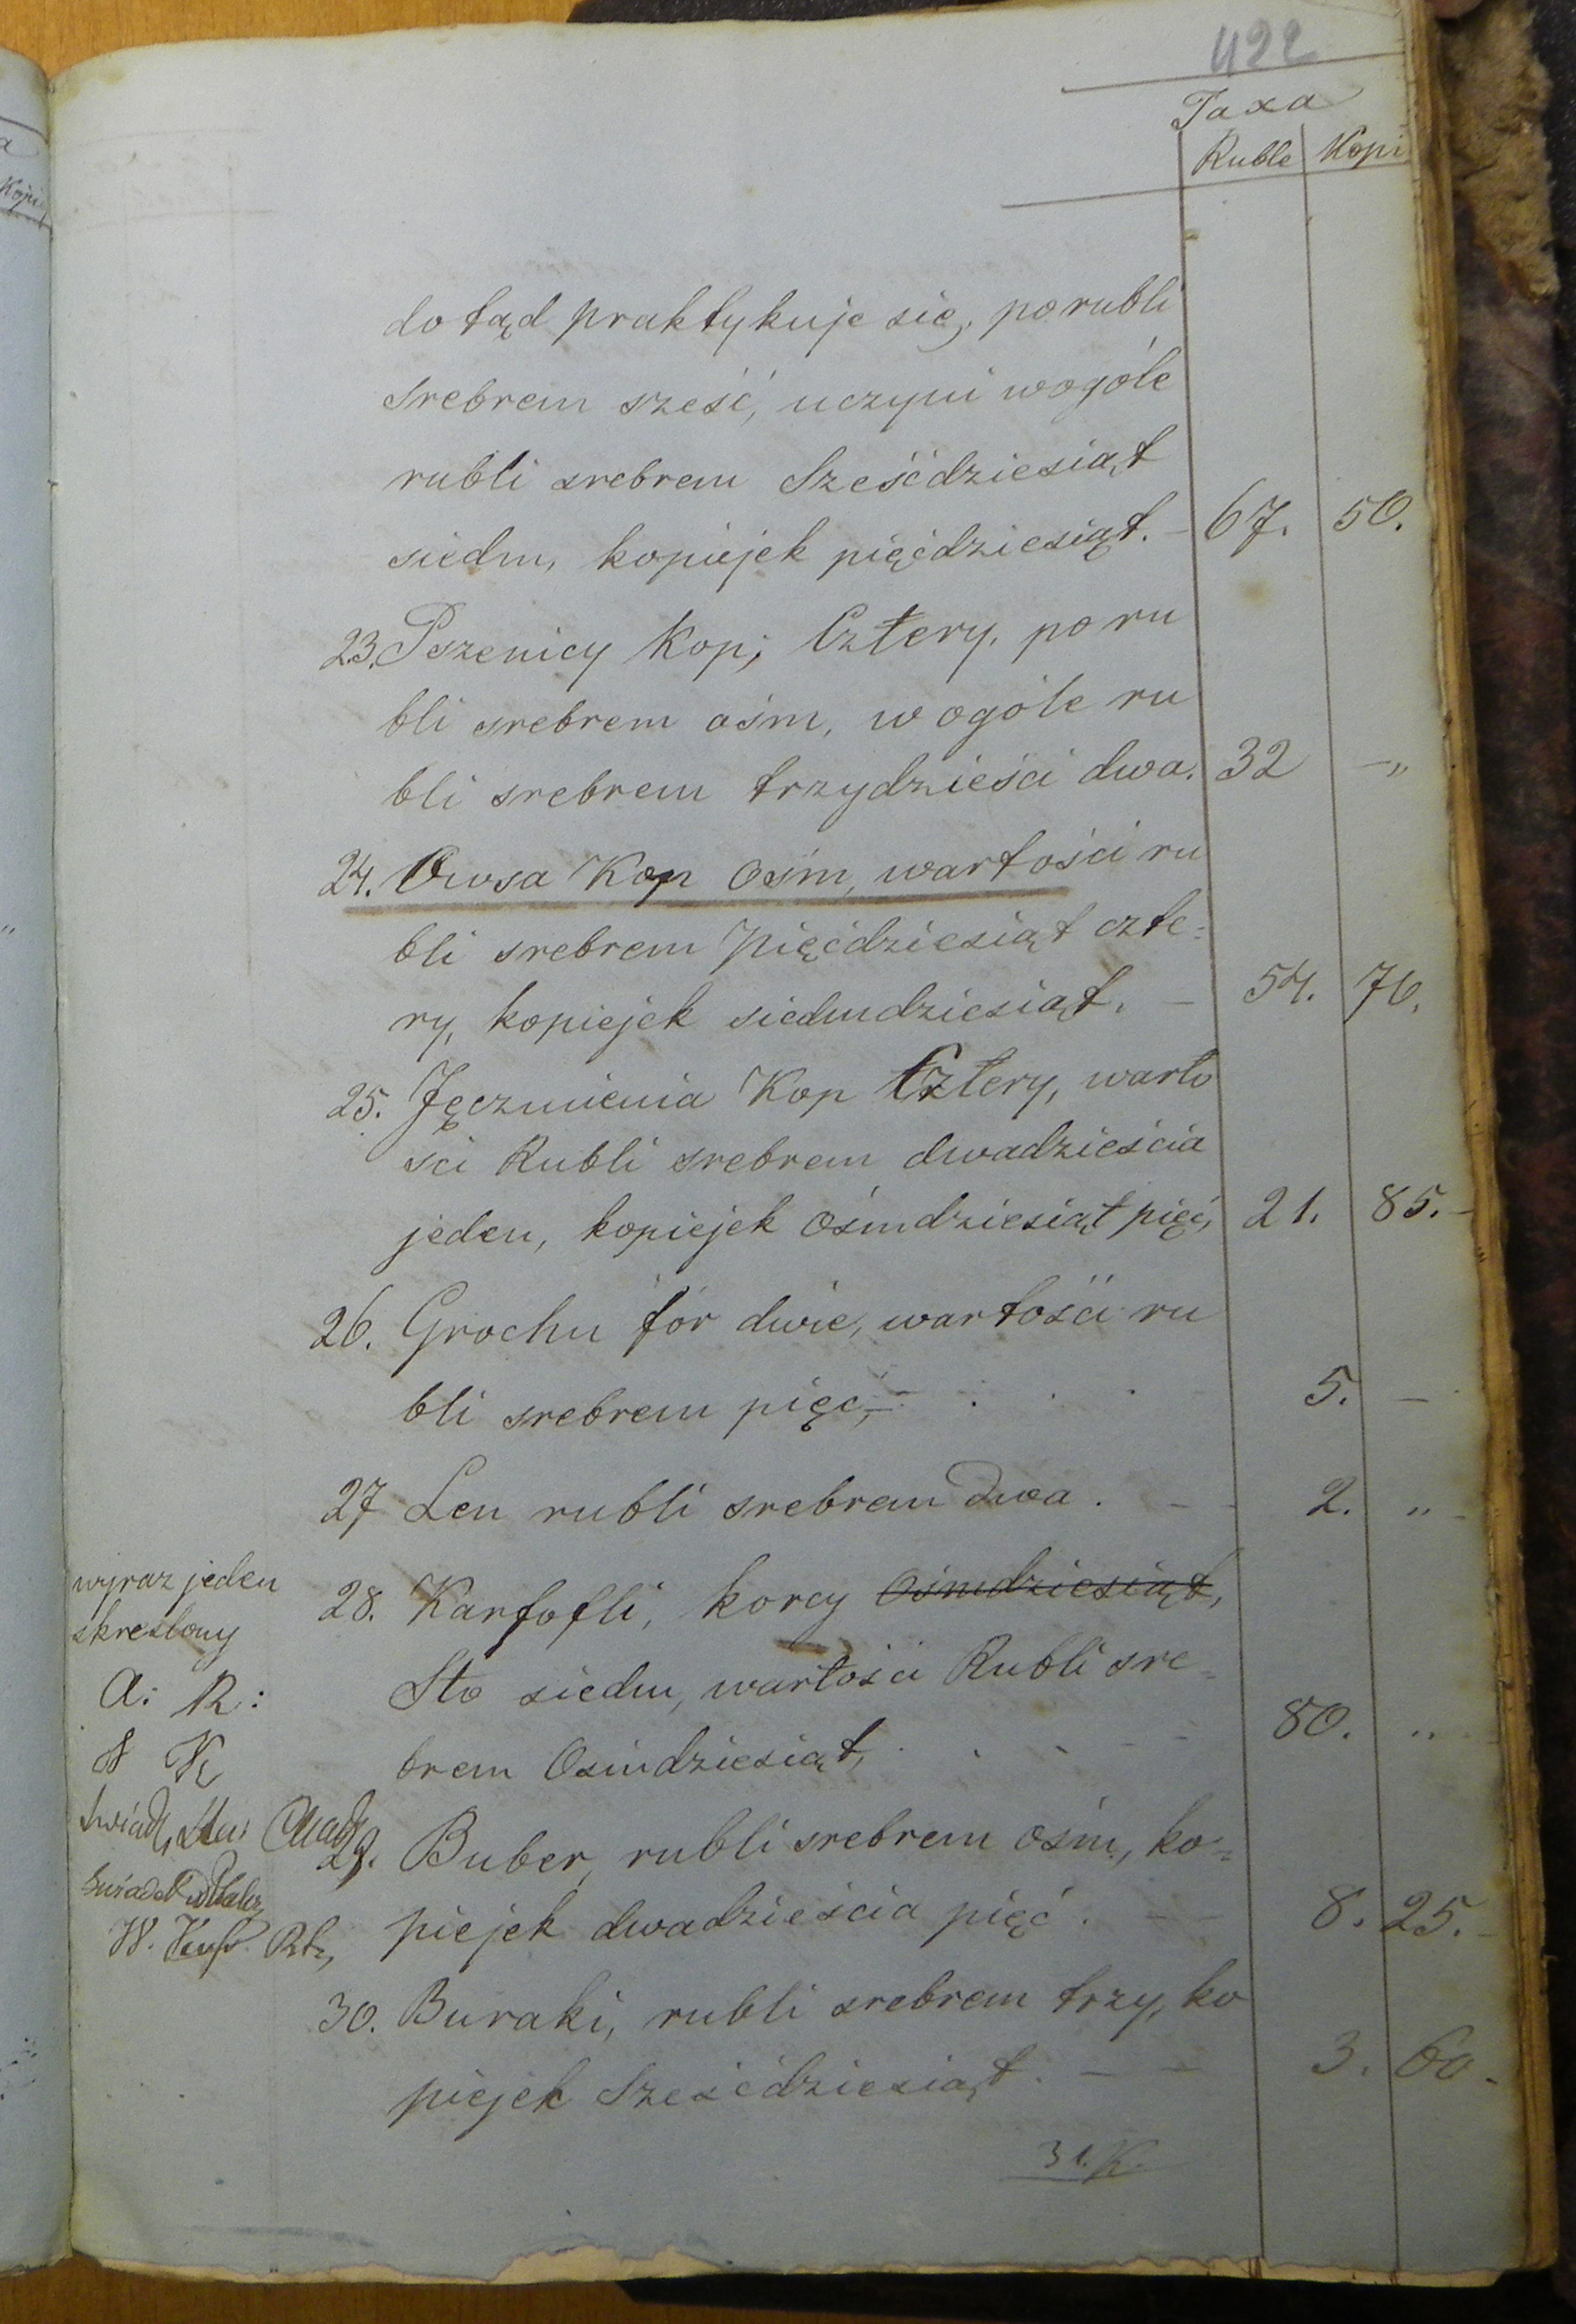 422
Taxa
Ruble Kopi
dotąd praktykuje się, po rubli
srebrem sześć, uczyni wogóle
rubli srebrem Sześćdziesiąt
siedm, kopiejek pięćdziesiąt. - 67. 50.
23. Pszenicy Kop; Cztery, po ru
bli srebrem ośm, wogóle ru
bli srebrem trzydzieści dwa. 32 - "
24. Owsa Kop Ośm, wartości ru
bli srebrem Pięćdziesiąt czte=
ry, kopiejek siedmdziesiąt. - 54. 70.
25. Jęczmienia Kop Cztery, warto
ści Rubli srebrem dwadzieścia
jeden, kopiejek Ośmdziesiąt pięć, 21. 85. -
26. Grochu fór dwie, wartości ru
bli srebrem pięć, - . . . 5. -
27 Len rubli srebrem dwa. - - 2. "
28. Kartofli, korcy Ośmdziesiąt,
Sto siedm, wartości Rubli sre=
brem Ośmdziesiąt, . . - - - 80. "
29. Buber, rubli srebrem ośm, ko=
piejek dwadzieścia pięć. - 8. 25. -
30. Buraki, rubli srebrem trzy, ko
piejek Sześćdziesiąt. - - 3. 60 -
31. K.
wyraz jeden
skreslony
A: R:
K
W. R